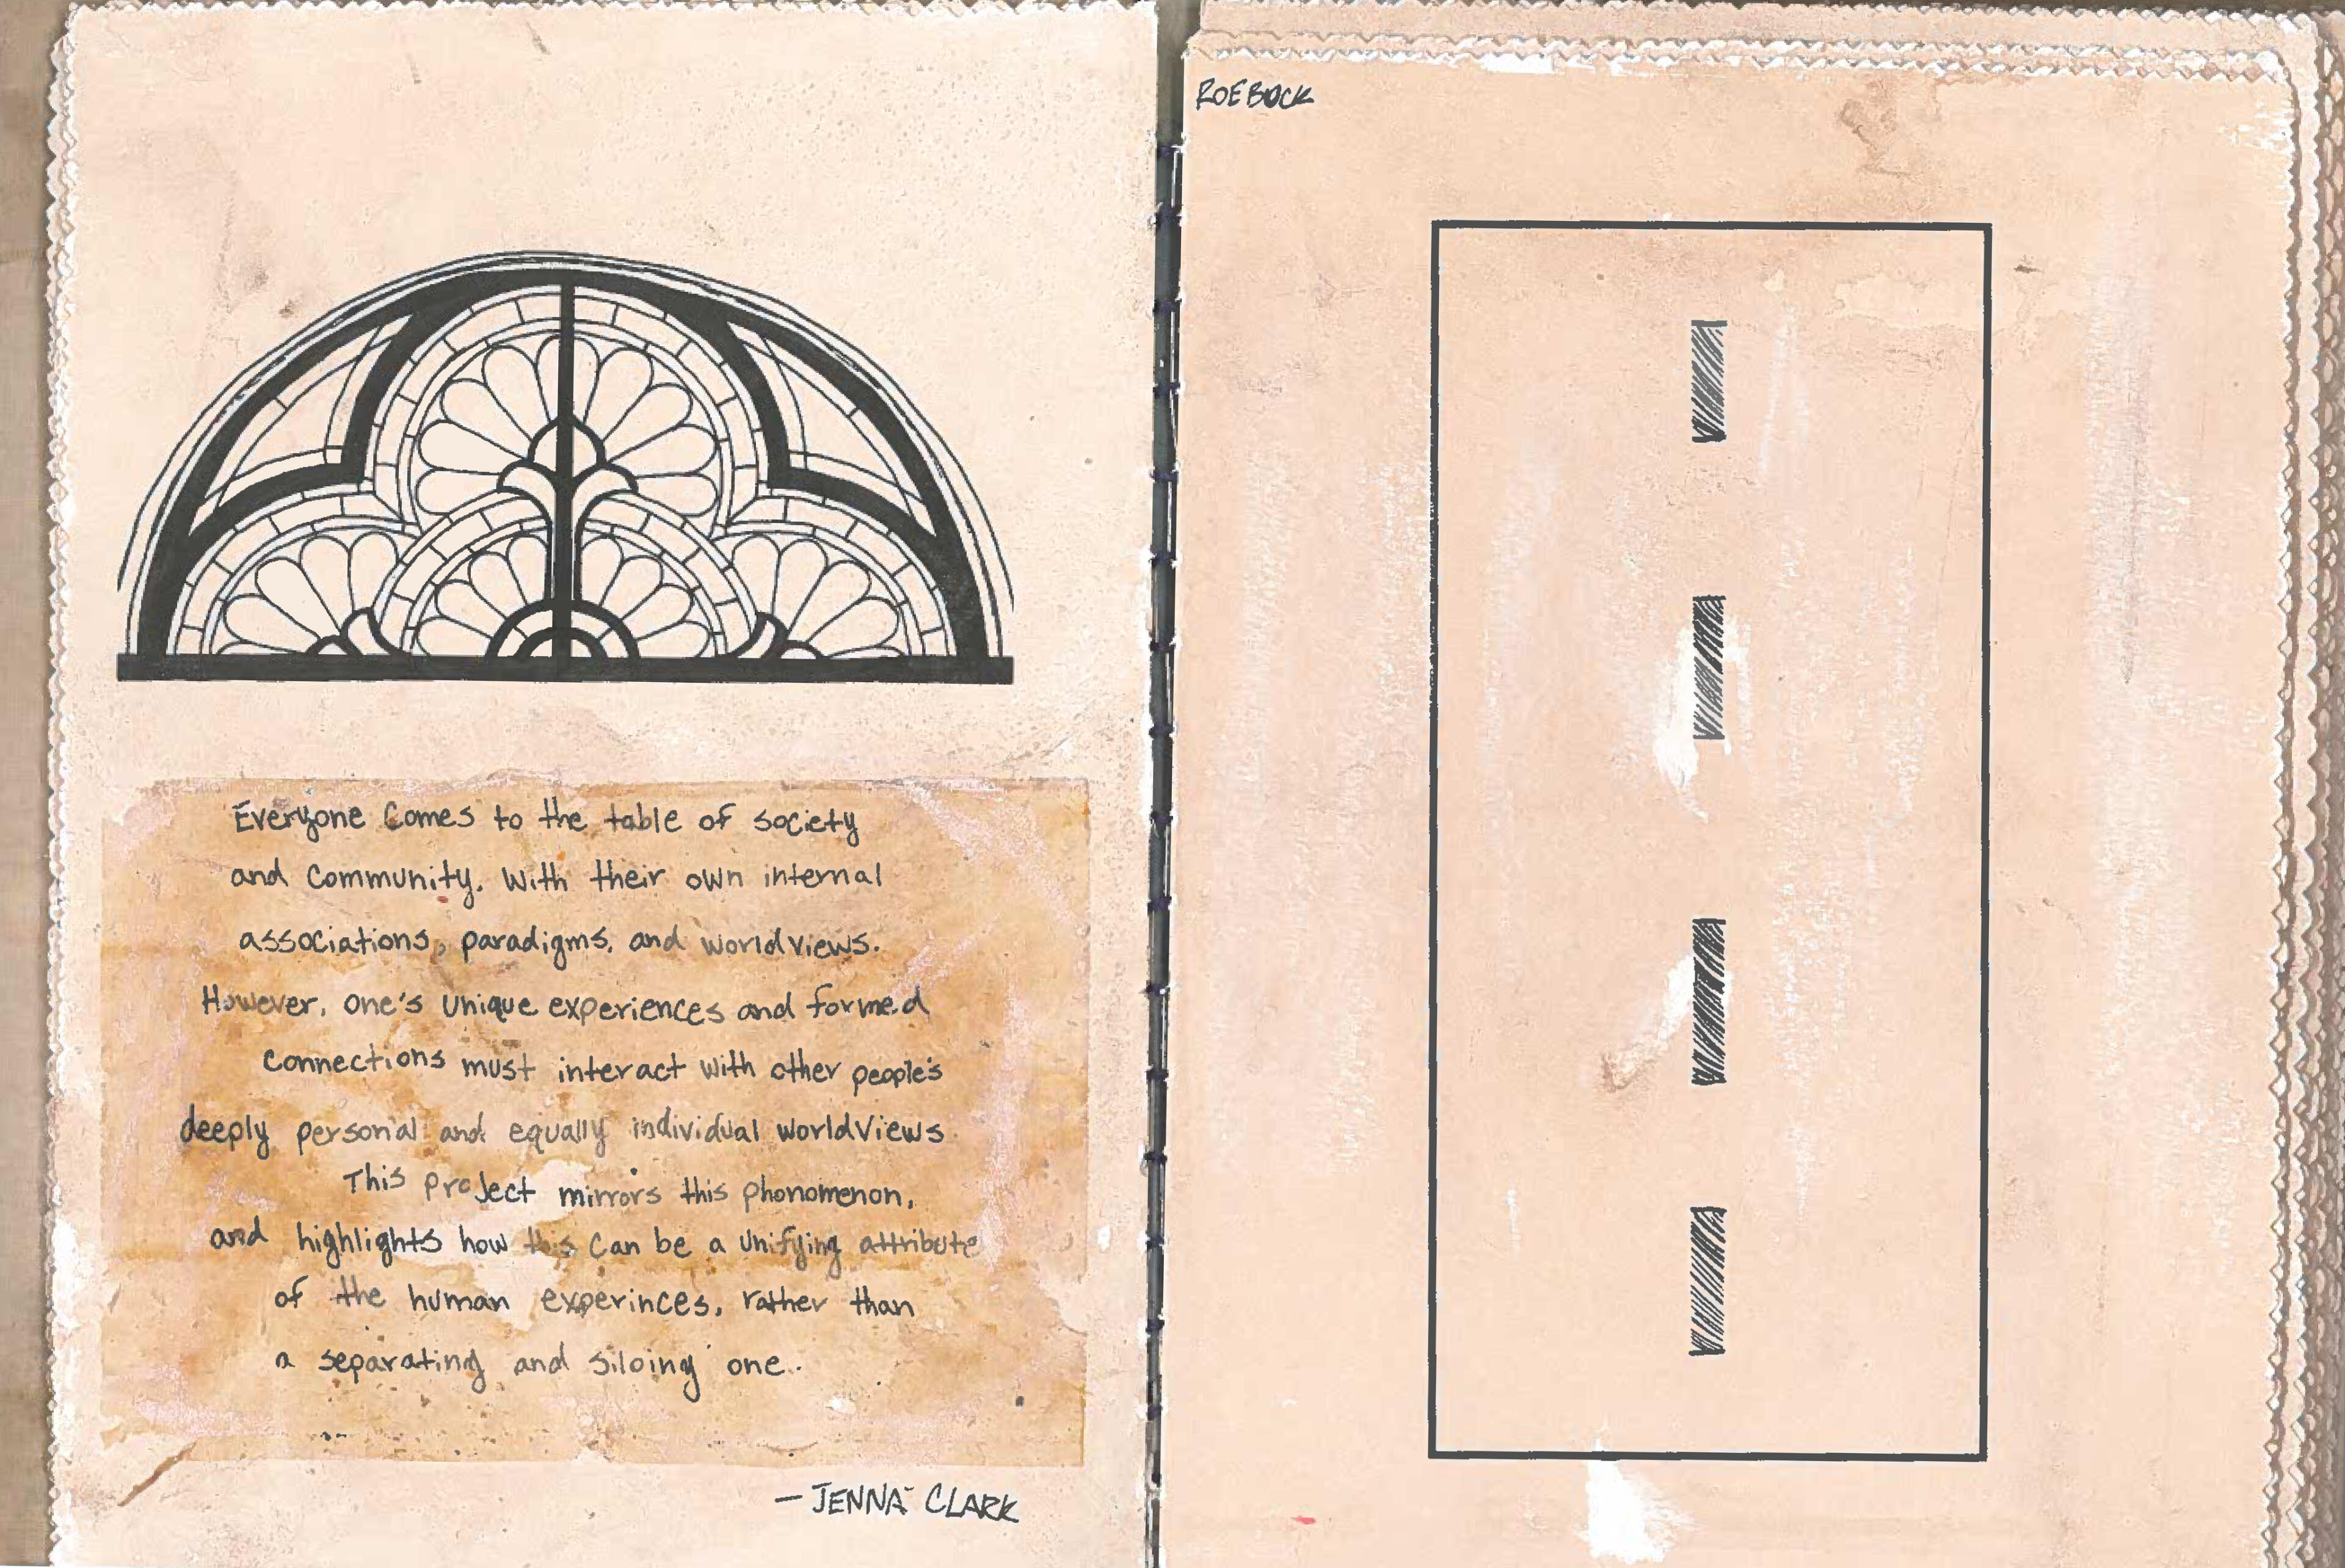 Everyone Comes to the table of society
and Community. With their own internal
associations, paradigms, and worldviews.
However, one's unique experiences and formed
connections must interact with other people's
deeply personal and equally individual worldviews
This project mirrors this phonomenon,
and highlights how this can be a unifying attribute
of the human experinces, rather than
a separating and siloing one.
— JENNA CLARK
ROEBUCK